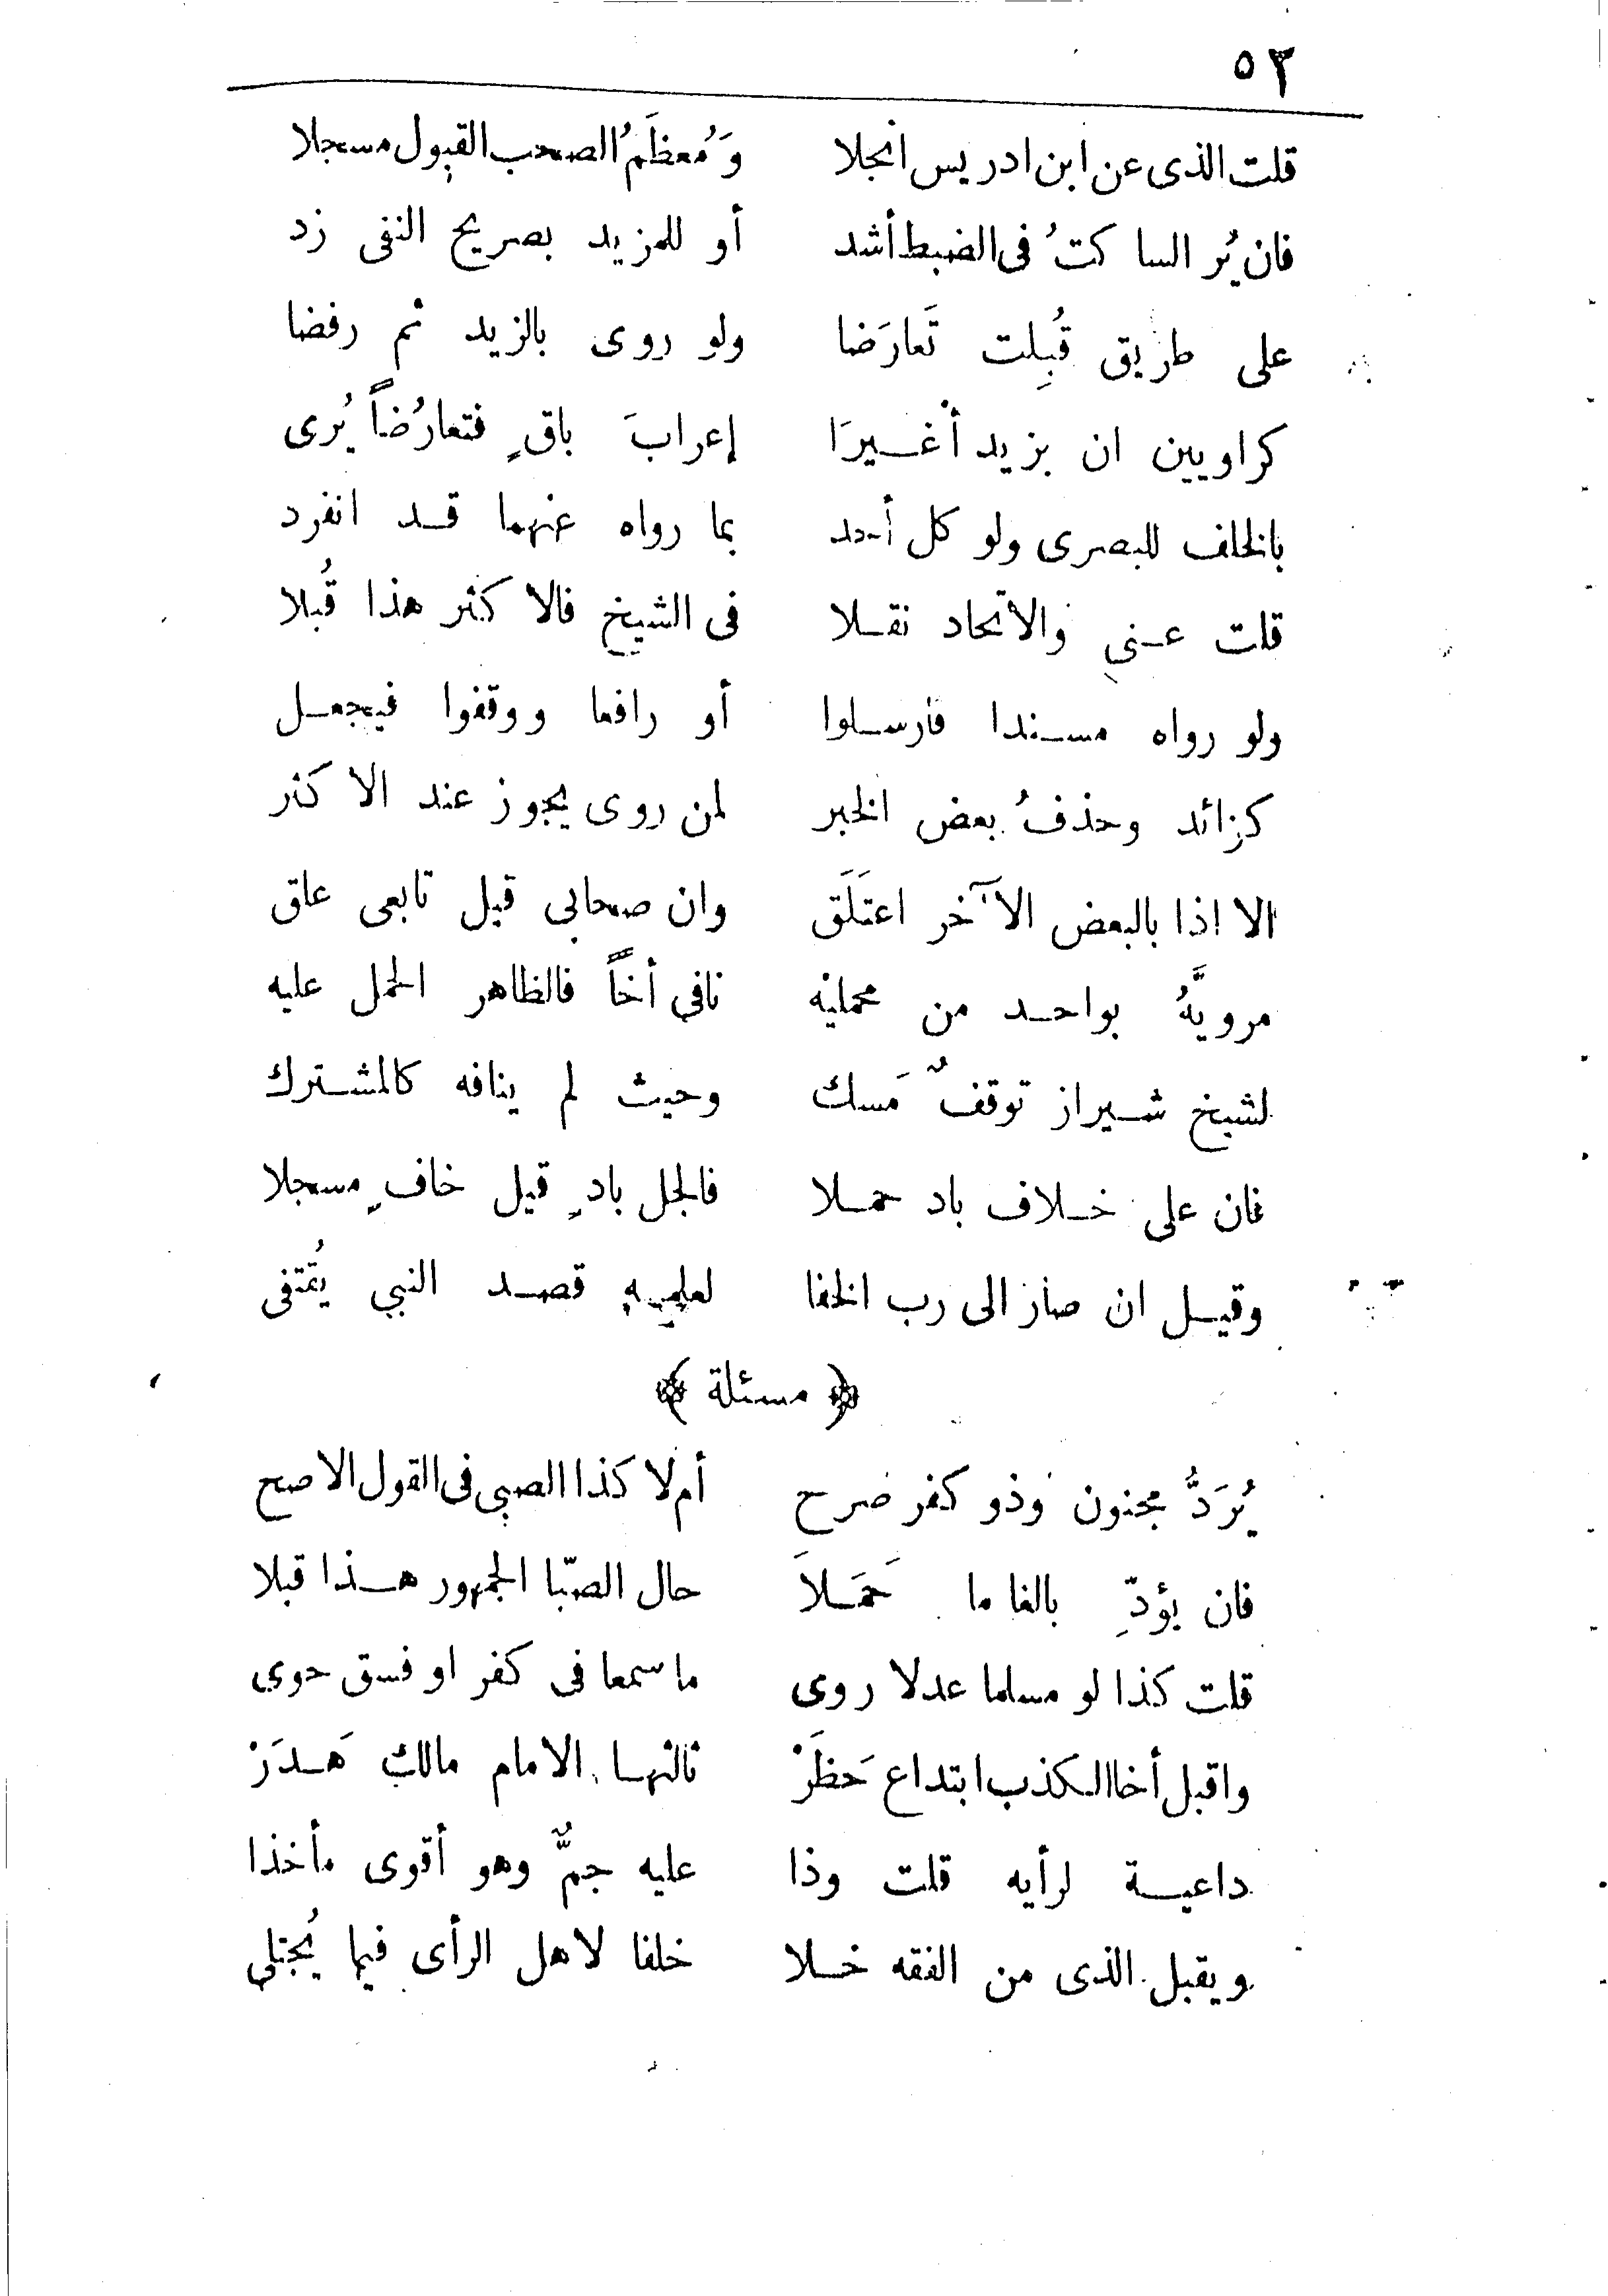 ٥٣
قلت الذى عن ابن ادريس انجلا وَمُعظَمُ الصحب القبول مسجلا
فان يُر الساكتُ فى الضبط أشد أو للمزيد بصريح النفى زد
على طريق قُبِلت تَعارَضا ولو روى بالزيد ثم رفضا
كراويين ان بزيد أغــيرَا إعرابَ باقٍ فتعارُضاً يُرى
بالخلف للبصرى ولو كل أحد بما رواه عنهما قد انفرد
قلت عنى والاتحاد نقلا فى الشيخ فالاكثر هذا قُبلا
ولو رواه مسندا فارسلوا أو رافعا ووقفوا فيجعل
كزائد وحذفُ بعض الخبر لمن روى يجوز عند الاكثر
الا اذا بالبعض الآخر اعتَلَق وان صحابى قيل تابعى علق
مرويَّهُ بواحد من محمليْه نافى أخاً فالظاهر الحمل عليه
لشيخ شيراز توقفٌ مَسك وحيث لم ينافه كالمشترك
فان على خلاف باد حملا فالجل بادٍ قيل خافٍ مسجلا
وقيل ان صار الى رب الخفا لعلمه قصد النبي يُقتفى
﴿ مسئلة ﴾
يُرَدُّ مجنون وذو كفر ضرح أم لا كذا الصبى فى القول الاصح
فان يؤدِّ بالغا ما حَمَلاَ حال الصّبا الجمهور هذا قبلا
قلت كذا لو مسلما عدلا روى ما سمعا فى كفر او فسق حوى
واقبل أخا الكذب ابتداع حَظَرْ ثالثها الامام مالك هَدَرْ
داعية لرأيه قلت وذا عليه جمٌّ وهو أقوى مأخذا
ويقبل الذى من الفقه خلا خلفا لاهل الرأى فيما يُجتلى